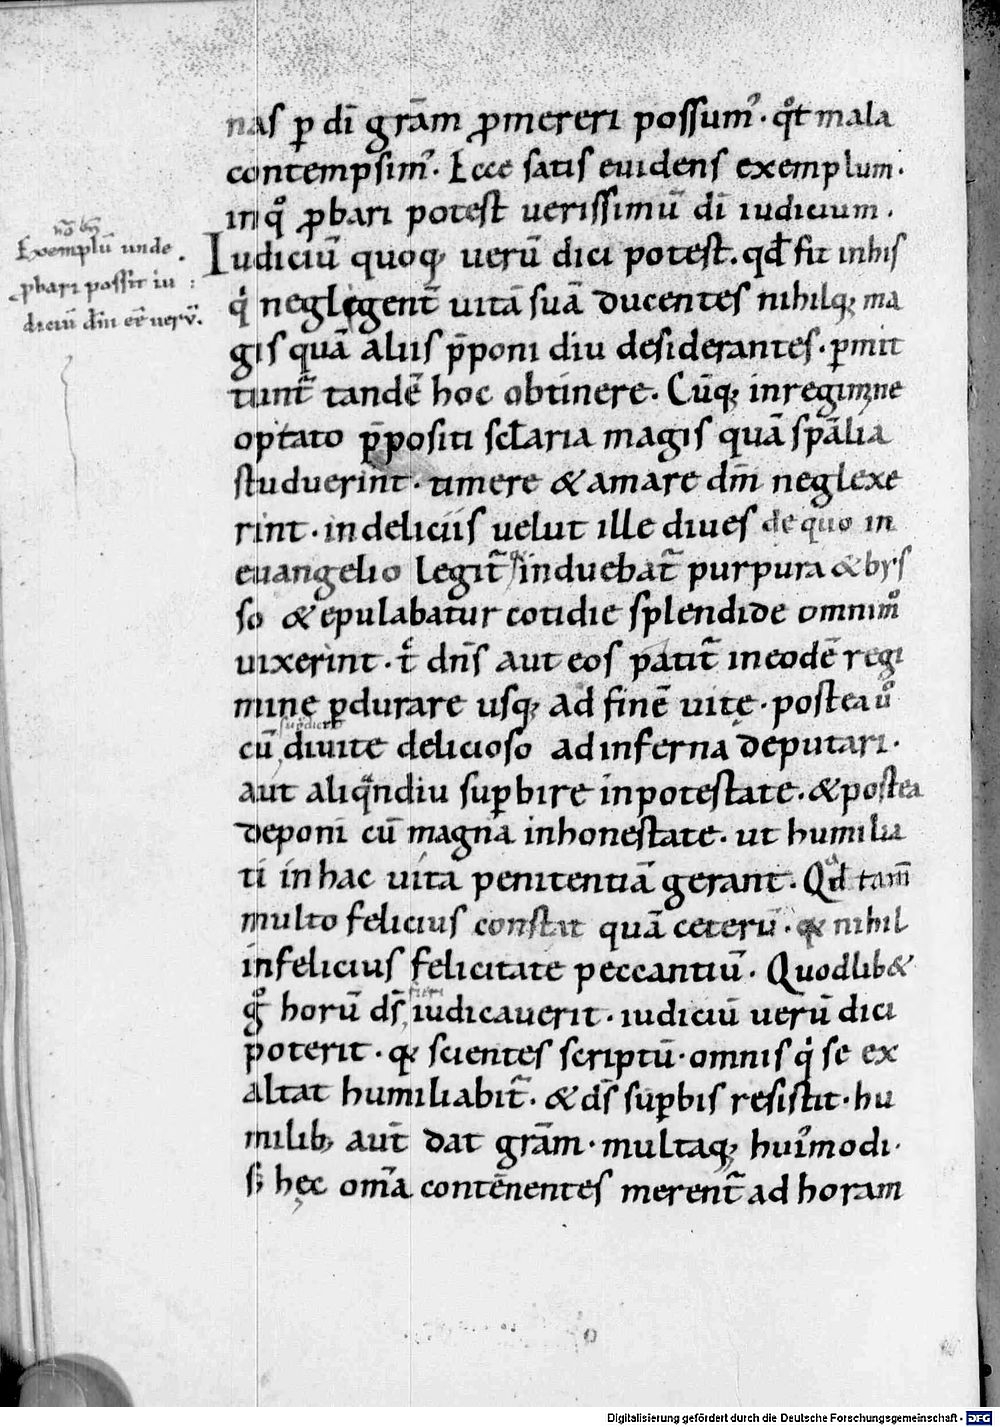 nas ꝑ dī grām ꝓmereri possum᾽. qͦt mala
contempsim᾽. Ecce satis euidens exemplum.
in qͦ ꝓbari potest uerissimū dī iudicium.
Iudiciū quoq; uerū dici potest. qđ fit in his
qͥ neglegent̄ uitā suā ducentes nihilq; ma
gis quā aliis p̄poni diu desiderantes. ꝑmit
tunt̄ tandē hoc obtinere. Cūq; in regimine
optato p̄positi scl̄aria magis quā sp̄alia
studuerint. timere & amare dm̄ neglexe
rint. in deliciis uelut ille diues de quo in
euangelio legit̄ induebat̄ purpura & bys
so & epulabatur cotidie splendide omnimͦ
uixerint. t̄ dn̄s aut eos patit̄ in eodē regi
mine ꝑdurare usq; ad finē uitę. postea uͦ
cū diuite delicioso ad inferna deputari.
aut aliqͣndiu suꝑbire in potestate. & postea
deponi cū magna inhonestate. ut humilia
ti in hac uita penitentiā gerant. Qđ tam̄
multo felicius constat quā ceterū. q; nihil
infelicius felicitate peccantiū. Quodlib&
gͦ horū ds̄ fieri iudicauerit. iudiciū uerū dici
poterit. q; scientes scriptū. omnis qͥ se ex
altat humiliabit̄. & ds̄ suꝑbis resistit. hu
milib; aut̄ dat grām. multaq; hui᾽modi.
s; hęc om̄a contēnentes merent̄ ad horam
Exemplū unde
ꝓbari possit iu
diciū dīn eē uerū.